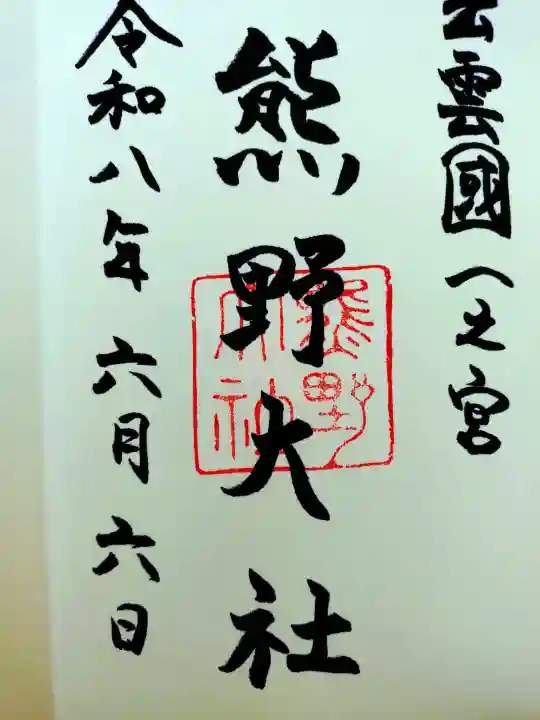 雲國一之宮
熊野大社
熊野大社
令和八年六月六日